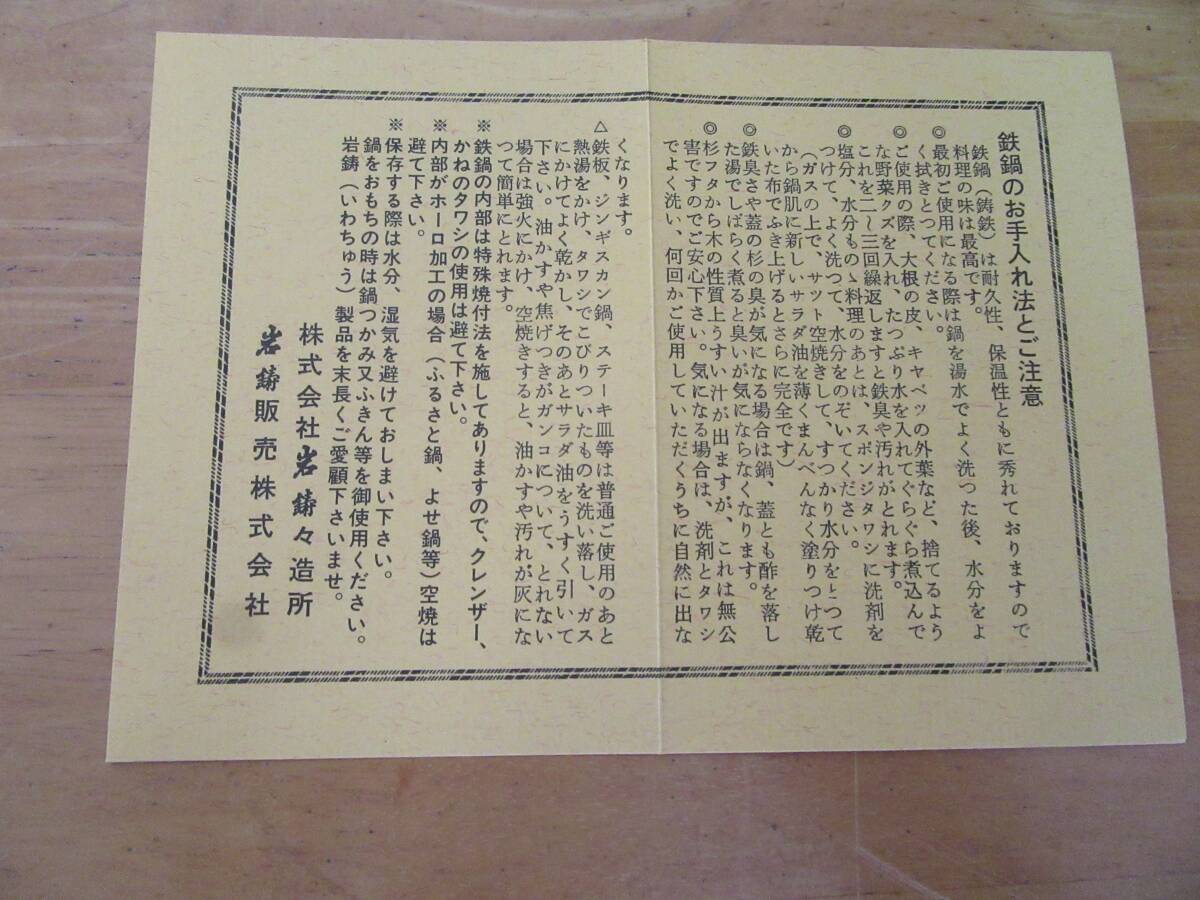 鉄鍋のお手入れ法とご注意
鉄鍋（鋳鉄）は耐久性、保温性ともに秀れておりますので
料理の味は最高です。
◎最初ご使用になる際は鍋を湯水でよく洗つた後、水分をよ
く拭きとつてください。
◎ご使用の際、大根の皮、キャベツの外葉など、捨てるよう
な野菜クズを入れ、たつぷり水を入れてぐらぐら煮込んで
これを二〜三回繰返しますと鉄臭や汚れがとれます。
◎塩分、水分ものゝ料理のあとは、スポンジタワシに洗剤を
つけて、よく洗つて、水分をのぞいてください。
（ガスの上で、サット空焼きして、すつかり水分をとつて
から鍋肌に新しいサラダ油を薄くまんべんなく塗りつけ乾
いた布でふき上げるとさらに完全です）
◎鉄臭さや蓋の杉の臭が気になる場合は鍋、蓋とも酢を落し
た湯でしばらく煮ると臭いが気にならなくなります。
◎杉フタから木の性質上うすい汁が出ますが、これは無公
害ですのでご安心下さい。気になる場合は、洗剤とタワシ
でよく洗い、何回かご使用していただくうちに自然に出な
くなります。
△鉄板、ジンギスカン鍋、ステーキ皿等は普通ご使用のあと
熱湯をかけ、タワシでこびりついたものを洗い落し、ガス
にかけてよく乾かし、そのあとサラダ油をうすく引いて
下さい。油かすや焦げつきがガンコについて、とれない
場合は強火にかけ、空焼きすると、油かすや汚れが灰にな
つて簡単にとれます。
※鉄鍋の内部は特殊焼付法を施してありますので、クレンザー、
かねのタワシの使用は避て下さい。
※内部がホーロ加工の場合（ふるさと鍋、よせ鍋等）空焼は
避て下さい。
※保存する際は水分、湿気を避けておしまい下さい。
鍋をおもちの時は鍋つかみ又ふきん等を御使用ください。
岩鋳（いわちゅう）製品を末長くご愛顧下さいませ。
株式会社岩鋳々造所
岩鋳販売株式会社